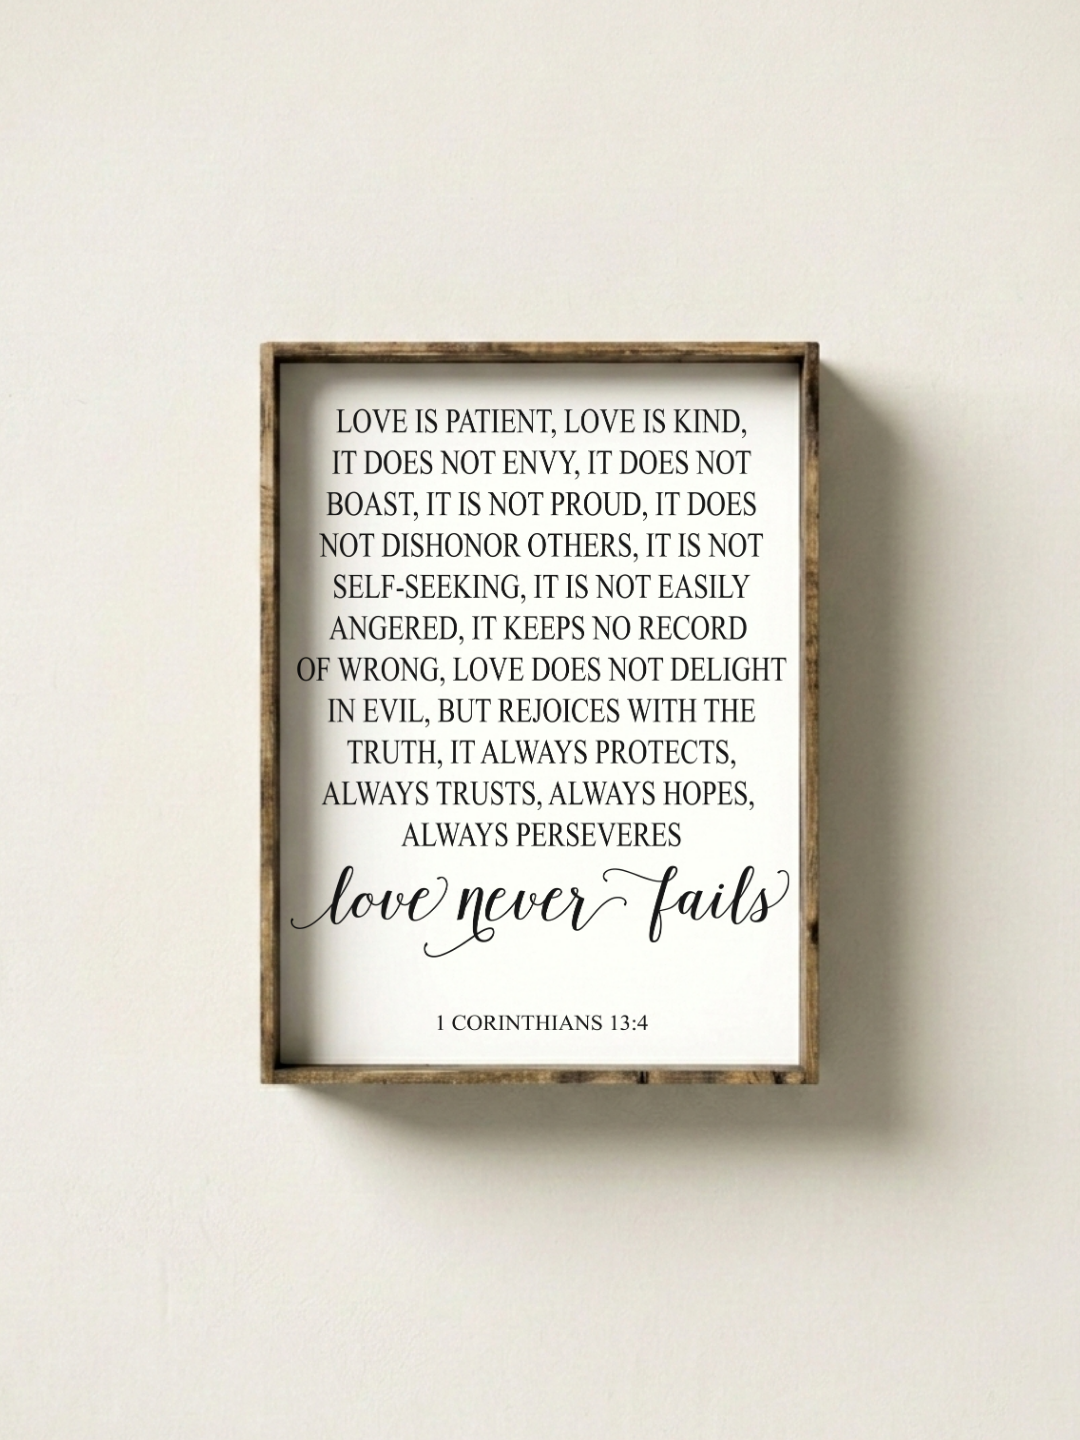 LOVE IS PATIENT, LOVE IS KIND,
IT DOES NOT ENVY, IT DOES NOT
BOAST, IT IS NOT PROUD, IT DOES
NOT DISHONOR OTHERS, IT IS NOT
SELF-SEEKING, IT IS NOT EASILY
ANGERED, IT KEEPS NO RECORD
OF WRONG, LOVE DOES NOT DELIGHT
IN EVIL, BUT REJOICES WITH THE
TRUTH, IT ALWAYS PROTECTS,
ALWAYS TRUSTS, ALWAYS HOPES,
ALWAYS PERSEVERES
love never fails
1 CORINTHIANS 13:4